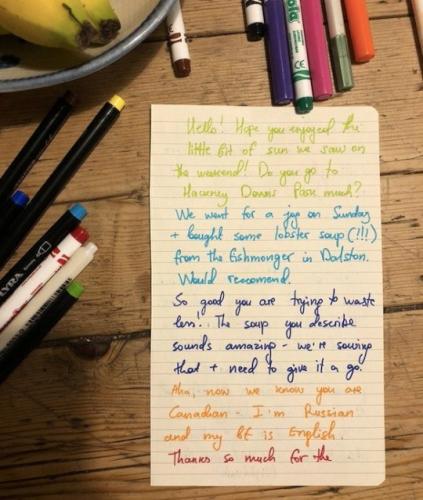 Hello! Hope you enjoyed the
little bit of sun we saw on
the weekend! Do you go to
Hackney Downs Park much?
We went for a jog on Sunday
+ bought some lobster soup (!!!)
from the fishmonger in Dalston.
Would recommend.
So good you are trying to waste
less. The soup you describe
sounds amazing - we're saving
that + need to give it a go.
Aha, now we know you are
Canadian - I'm Russian
and my BF is English.
Thanks so much for the
LYRA